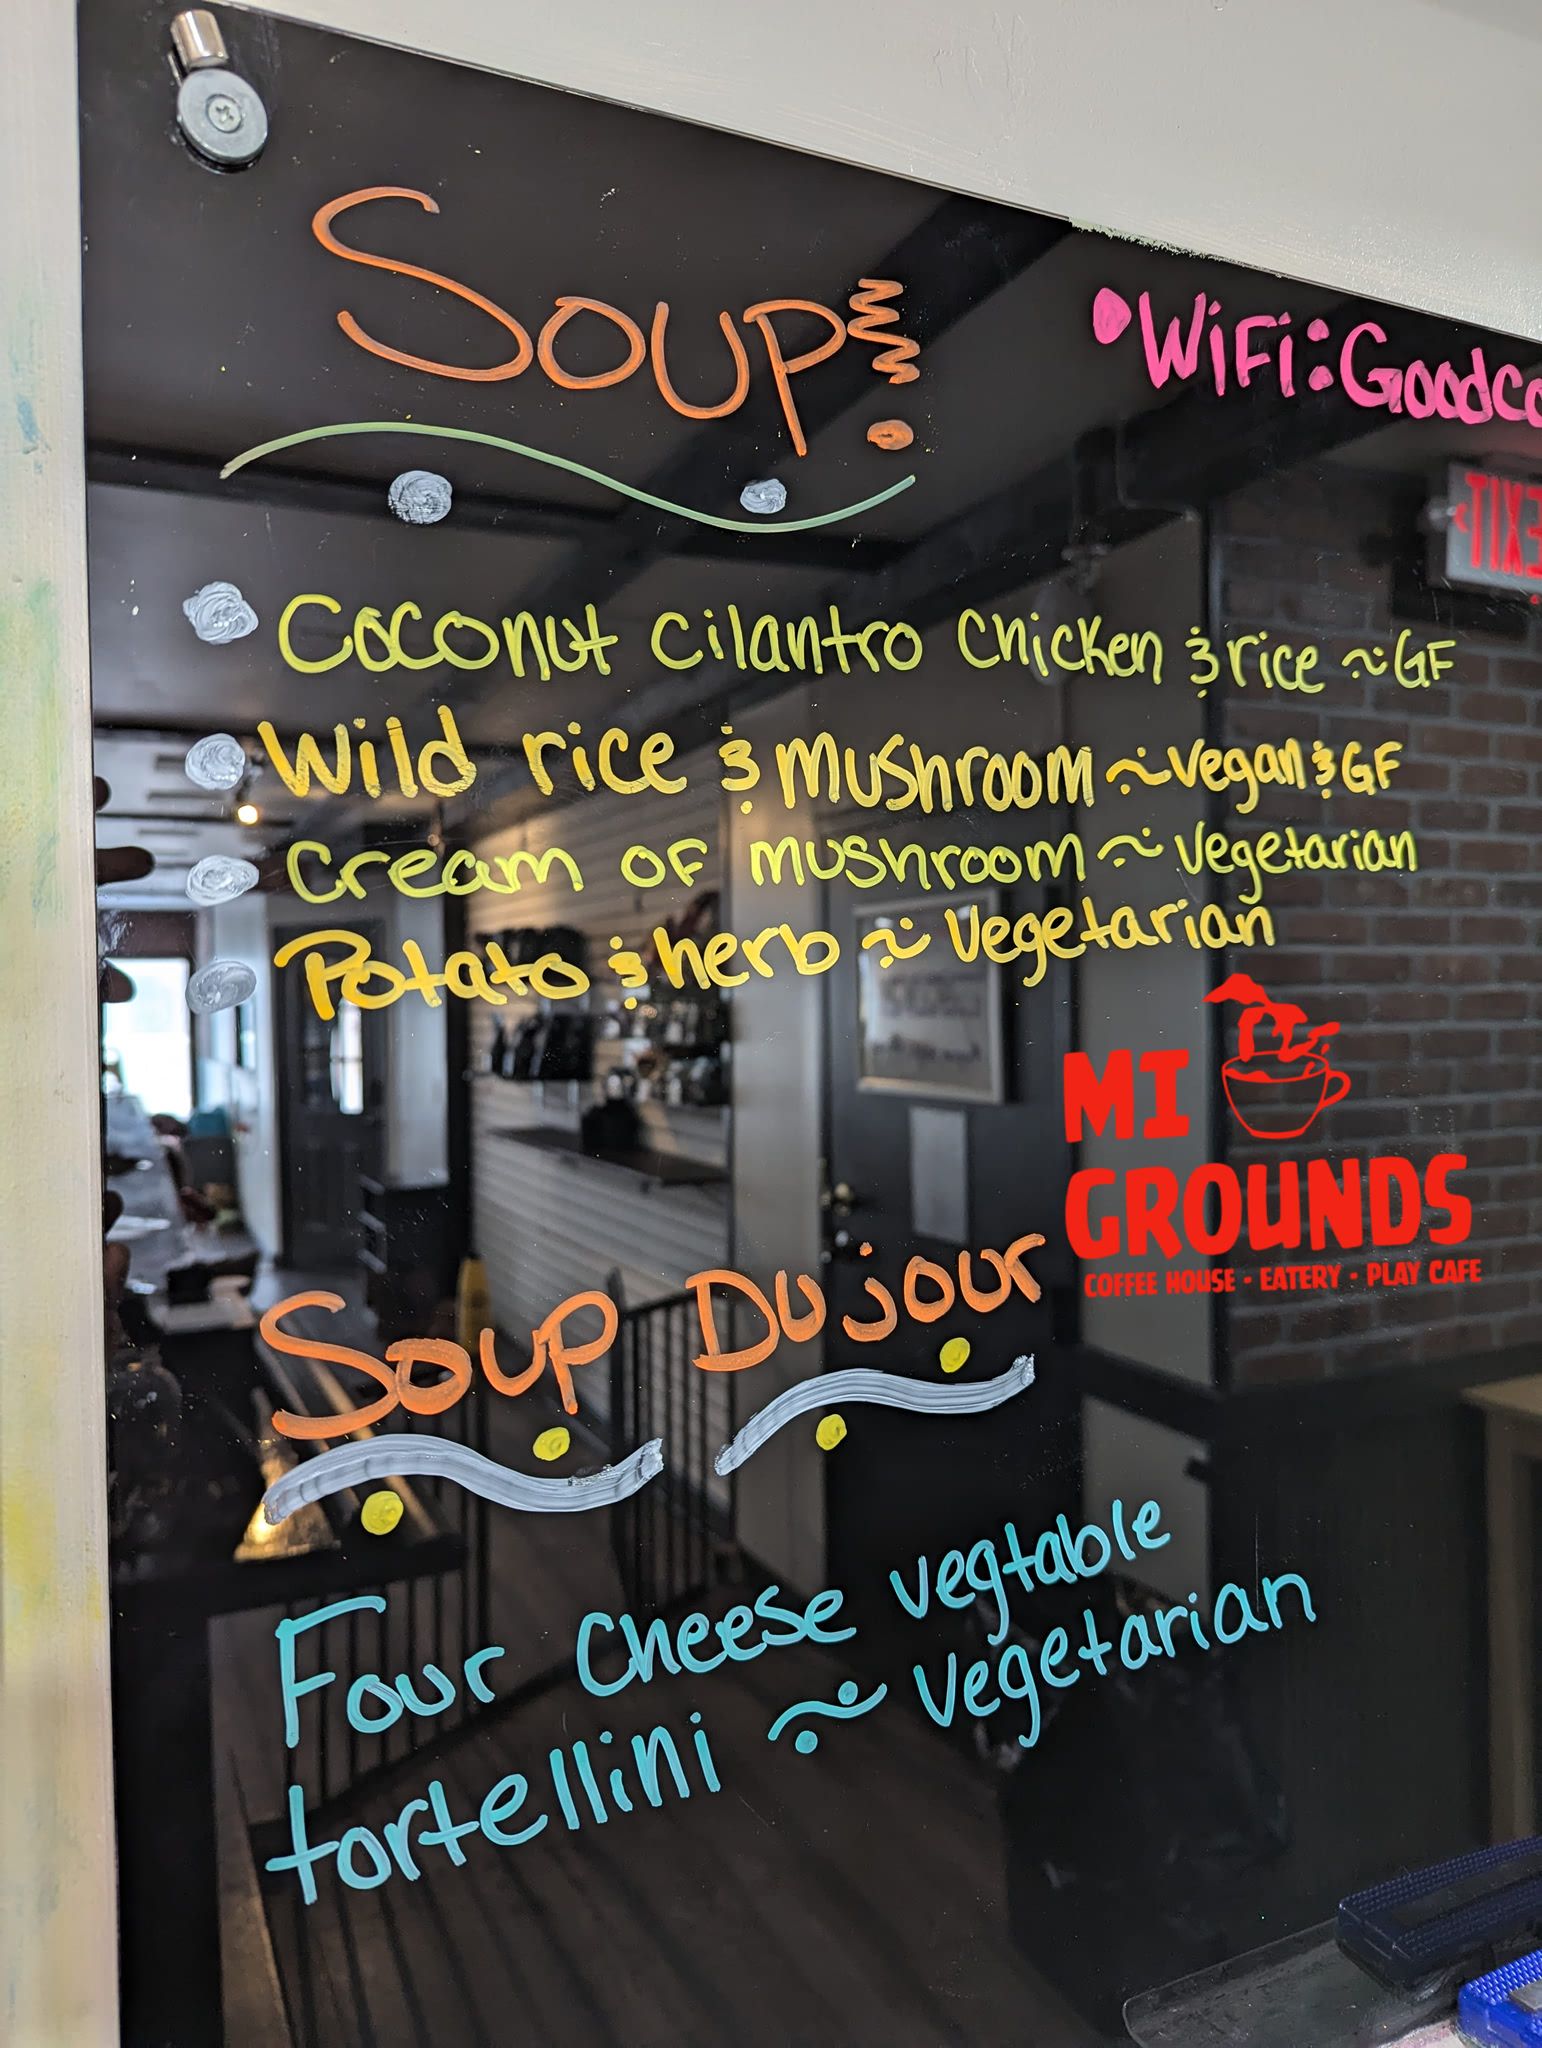 Soup
• WiFi: Goodco
EXIT
Coconut Cilantro Chicken & rice ~ GF
Wild rice & Mushroom ~ Vegan & GF
Cream of mushroom ~ Vegetarian
Potato & herb ~ Vegetarian
MI
GROUNDS
COFFEE HOUSE • EATERY • PLAY CAFE
Soup Du jour
Four Cheese vegtable
tortellini ~ Vegetarian